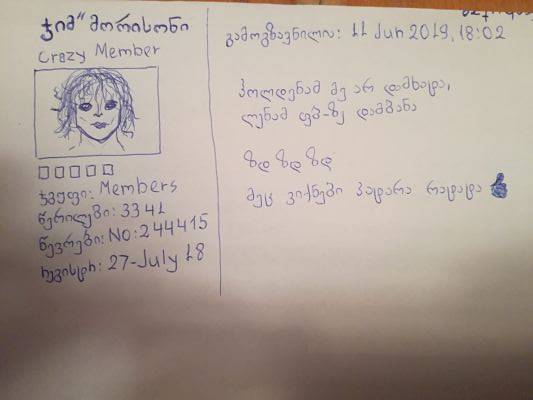 ჯიმ" მორისონი
Crazy Member
ჯგუფი: Members
წერილები: 3341
წევრები: No: 244415
რეგისტრ: 27-July 18
გამოგზავნილია: 11 Jun 2019, 18:02
პოლდენამ მე არ დამხატა,
ლენამ ფბ-ზე დამბანა
ზდ ზდ ზდ
მეც ვიქნები პატარა რატატა